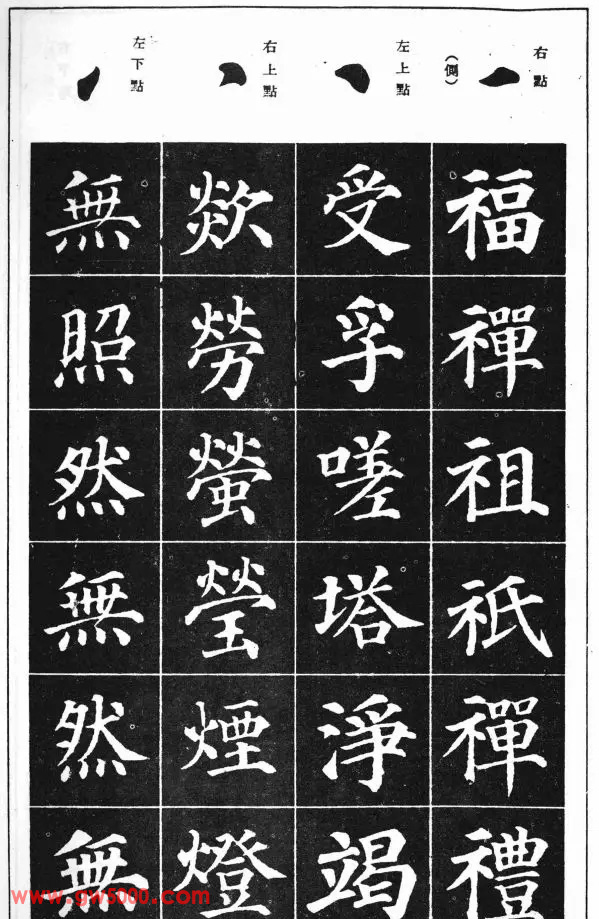 右點
(側)
福禪祖祇禪禮
左上點
受孚嗟塔淨竭
右上點
歘勞螢瑩煙燈
左下點
無照然無然無
www.gw5000.com